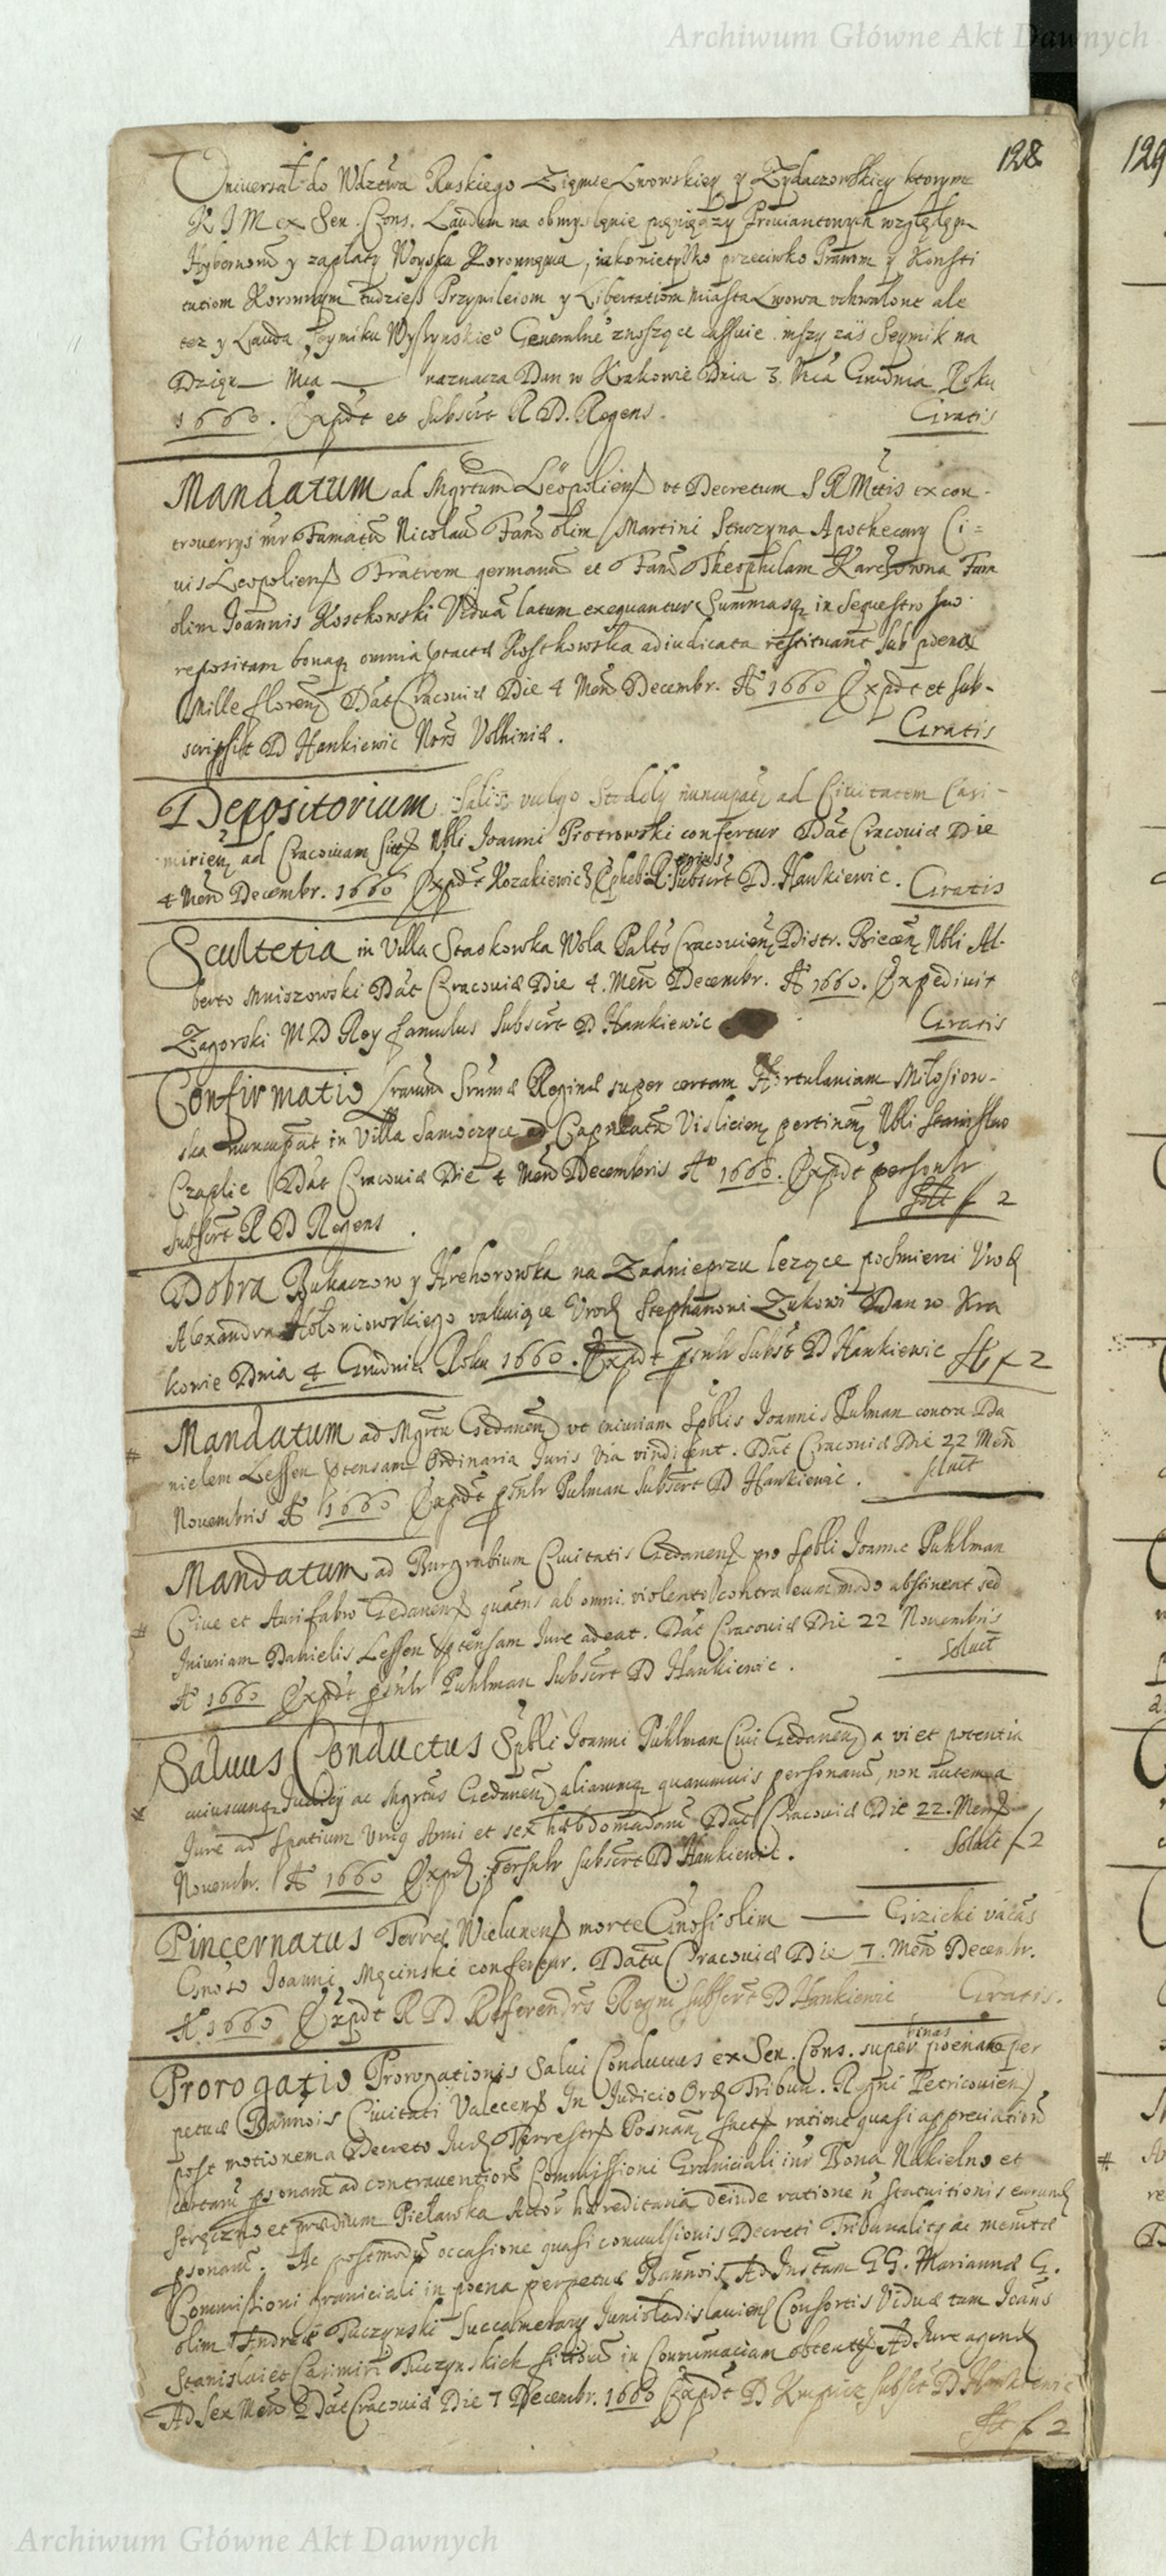 Archiwum Główne Akt Dawnych
128
129
Uniwersał do Wdztwa Ruskiego Ziemie Lwowskiey y Zydaczowskiey ktorym
K I M ex Sen. Cons. Laudum na obmyslęnie pięnięzy Prowiantowych względęm
Hybernom y zapłaty Woysku Koronnęmu, iako nietylko przeciwko Prawom y Konsti
tutiom Koronnym tudziesz Przywileiom y Libertatiom Miasta Lwowa uchwalone ale
tez y Lauda Seymiku Wysznskieo Generalne znoszące cassuie inszy zaś Seymik na
Dzięn — Mca — naznacza Dan w Krakowie Dnia 3. Mca Grudnia Roku
1660. Expdt et Subscrt R D. Regens. Gratis
Mandatum ad Mgrtum Leopoliens ut Decretum S R Mttis ex con-
trouersys inr Famatu Nicolau Fand olim Martini Struzyna Apothecary Ci=
uis Leopoliens Fratrem germanu et Fand Theophilam Fam
olim Joannis Kostkowski Vidua latum exequantur Summasq in Sequestro suo
repositam bonaq omnia ptactæ Kostkowska adiudicata restituant sub poena
Mille floren Dat Cracouiæ Die 4 Men Decembr. Ao 1660 Expdt et Sub-
scripsit D Hankiewic Nors Volhiniæ. Gratis
Depositorium Salis vulgo Stodoly nuncupat ad Ciuitatem Casi-
mirien ad Cracouiam sitt Nbli Joanni Piotrowski confertur Dat Cracouiæ Die
4 Men Decembr. 1660 Expdt Kozakiewicz Subscrt D. Hankiewic. Gratis
Scultetia in Villa Staskowka Wola Palts Cracouien Distr. Biecen Nbli Al-
berto Mniszowski Dat Cracouiæ Die 4. Men Decembr. Ao 1660. Expediuit
Zagorski M D Rey famulus Subscrt D Hankiewic Gratis
Confirmatio Srmæ Reginæ super certam Hortulaniam Milosion-
ska nuncupat in Villa Samoczyce ad Capneatu Vislicien pertinen Nbli Stanislao
Czaplic Dat Cracouiæ Die 4 Men Decembris Ao 1660. Expdt personlr
Subscrt R D Regens. Solt f 2
Dobra Bukaczow y Hrehorowka na Zadnieprzu lezące po Smierci Urod
Alexandra Hołoniowskiego vakuiące Urod Stephanowi Zukowi Dan w Kra
kowie Dnia 4 Grudnia Roku 1660. Expdt psnlr Subst D Hankiewic St f 2
Mandatum ad Mgrtu Gedanen ut iniuriam Spblis Joannis Pulman contra Da
nielem Lessen ptensam Ordinaria Iuris Via vindicent. Dat Cracouiæ Die 22 Men
Novembris Ao 1660 Expdt psnlr Pulman Subscrt D Hankiewic. Soluit
Mandatum ad Burgrabium Ciuitatis Gedanens pro Spbli Joanne Puhlman
Ciue et Aurifabro Gedanens quatnus ab omni violentia contra eum modo abstineat sed
Iniuriam Danielis Lessen ptensam Iure adeat. Dat Cracouiæ Die 22 Novembris
Ao 1660 Expdt psnlr Puhlman Subscrt D Hankiewic. Soluit
Saluus Conductus Spbli Joanni Puhlman Ciui Gedanen a vi et potentia
cuiuscunq Iudicij ac Mgrtus Gedanen aliarumq quarumuis personaru, non autem a
Iure ad Spatium Unig Anni et sex hebdomadaru Dat Cracouiæ Die 22. Mens
Novembr. Ao 1660 Expd persnlr subscrt D Hankiewic. Soluit f 2
Pincernatus Terræ Wielunens morte Gnosi olim — Girzicki vacas
Gnoso Joanni Męcinski confertur. Datu Cracouiæ Die 7. Men Decembr.
Ao 1660 Expdt R D Referendrs Regni subscrt D Hankiewic Gratis.
Prorogatio Prorogationis Salui Conductus ex Sen. Cons. super binas poenas per
petuæ Bannois Ciuitati Valecens In Iudicio Ord Tribun. Regni Petricouien
post motionem a Decreto Iud Terrestrs Posnan fact ratione quasi appreciation
certaru psonaru ad contrauention Commissioni Graniciali inr Bona Nakielno et
Stręczno et prædium Pielawska Actor hæreditaria deinde ratione n statuitionis earund
psonaru. Ac postmodu occasione quasi conuulsionis Decreti Tribunalitij ac memtæ
Commissioni Graniciali in poena perpetuæ Bannois Ad Instam GG. Mariannæ G.
olim Andreæ Tuczynski Succamerary Juniuladislauiens Consortis Viduæ tum Joans
Stanislai et Casimiri Tuczynskich filioru in Contumaciam obtent Ad Iure agend
Ad Sex Men Dat Cracouiæ Die 7 Decembr. 1660 Expdt D Krupicz Subsct D Hankiewic
St f 2
Archiwum Główne Akt Dawnych